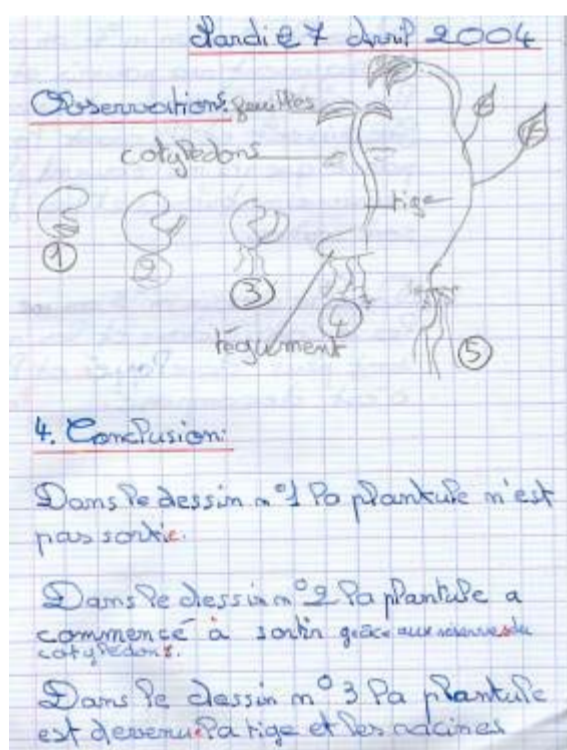 Mardi 27 Avril 2004
Observations:
feuilles
cotylédons
tige
1
2
3
4
5
tégument
4. Conclusion:
Dans le dessin n°1 la plantule n'est
pas sortie.
Dans le dessin n°2 la plantule a
commencé à sortir grâce aux réserves du
cotylédons.
Dans le dessin n°3 la plantule
est devenu la tige et les racines